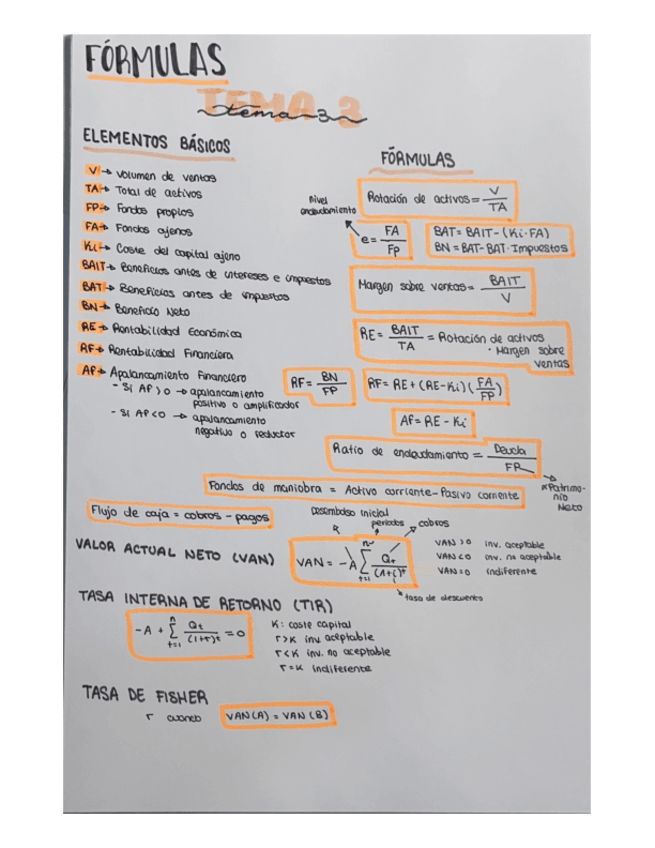 FÓRMULAS
TEMA 3
tema 3
ELEMENTOS BÁSICOS
V → Volumen de ventas
TA → Total de activos
FP → Fondos propios
FA → Fondos ajenos
Ki → Coste del capital ajeno
BAIT → Beneficios antes de intereses e impuestos
BAT → Beneficios antes de impuestos
BN → Beneficio Neto
RE → Rentabilidad Económica
RF → Rentabilidad Financiera
AF → Apalancamiento Financiero
- Si AF > 0 → apalancamiento
positivo o amplificador
- Si AF < 0 → apalancamiento
negativo o reductor
FÓRMULAS
Rotación de activos = V / TA
Nivel
endeudamiento
e = FA / FP
BAT = BAIT - (Ki · FA)
BN = BAT - BAT · Impuestos
Margen sobre ventas = BAIT / V
RE = BAIT / TA = Rotación de activos
· Margen sobre
ventas
RF = BN / FP
RF = RE + (RE - Ki) (FA / FP)
AF = RE - Ki
Ratio de endeudamiento = Deuda / FP
* Patrimo-
nio
Neto
Fondos de maniobra = Activo corriente - Pasivo corriente
Flujo de caja = cobros - pagos
VALOR ACTUAL NETO (VAN)
Desembolso inicial
periodos
cobros
VAN = -A ∑ n t=1 Qt / (1+i)^t
tasa de descuento
VAN > 0 inv. aceptable
VAN < 0 inv. no aceptable
VAN = 0 indiferente
TASA INTERNA DE RETORNO (TIR)
-A + ∑ n t=1 Qt / (1+r)^t = 0
K: coste capital
r > K inv. aceptable
r < K inv. no aceptable
r = K indiferente
TASA DE FISHER
r cuando VAN (A) = VAN (B)